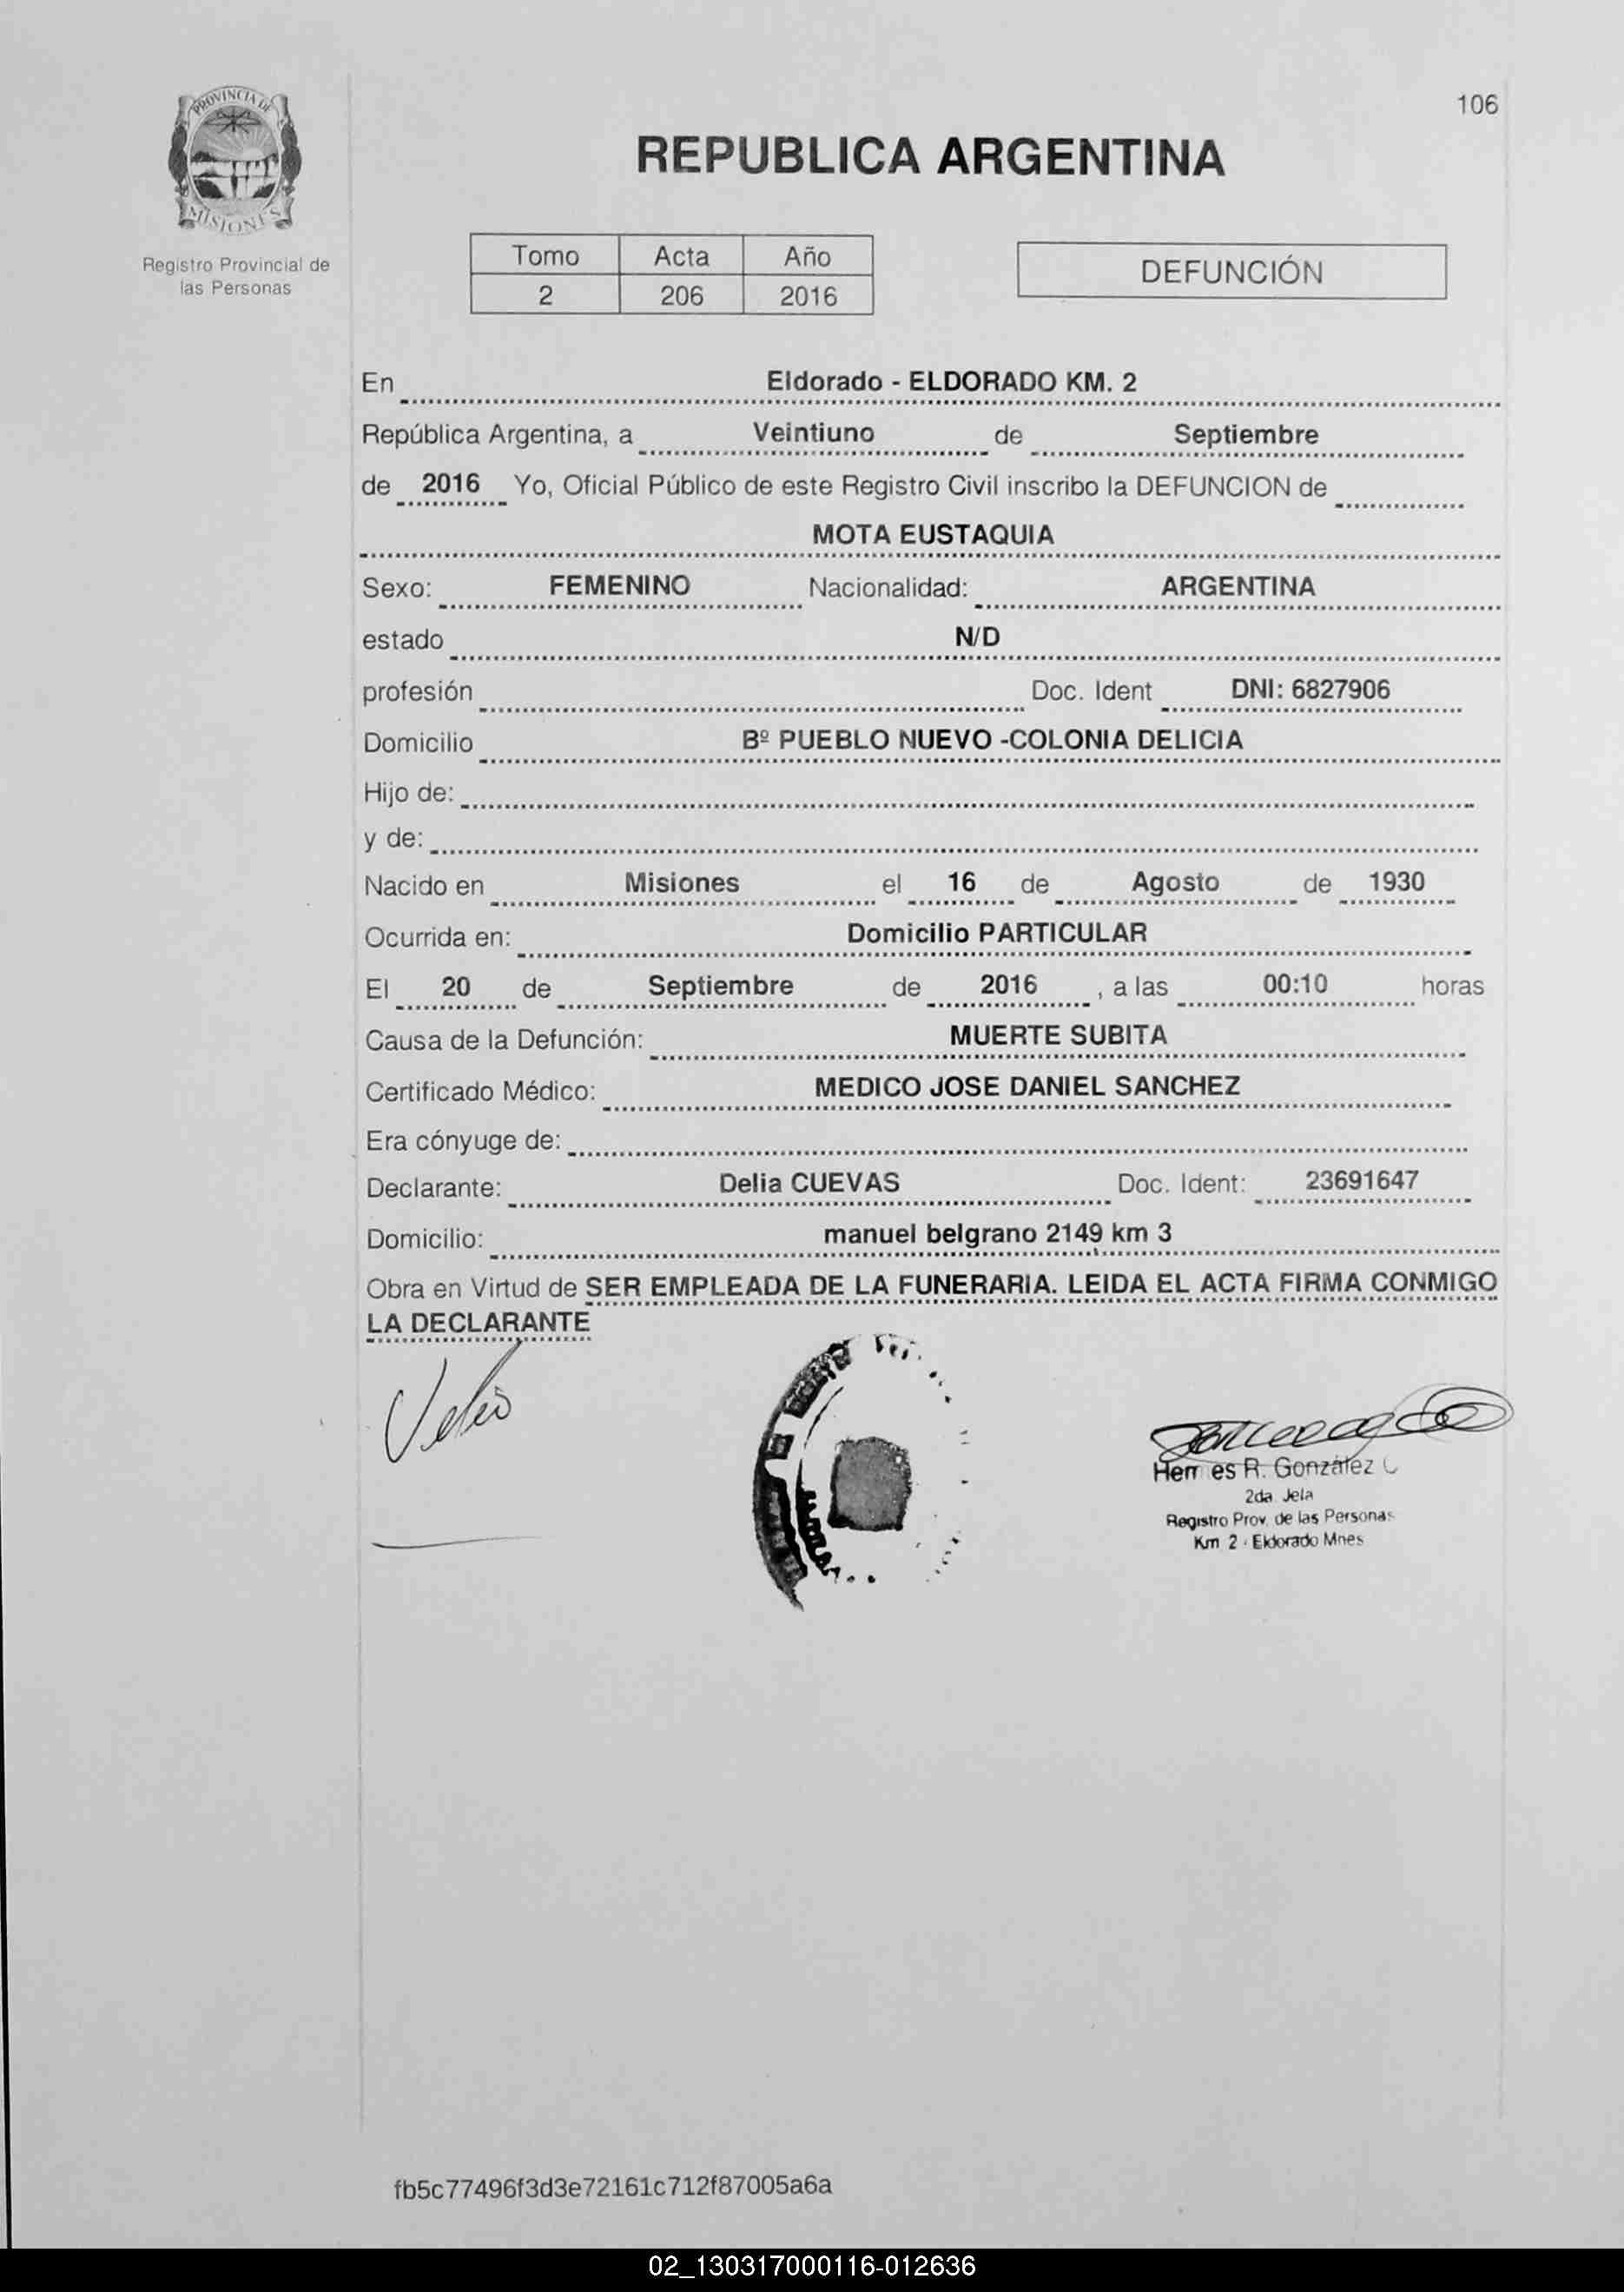 106
PROVINCIA DE
MISIONES
Registro Provincial de
las Personas
REPUBLICA ARGENTINA
Tomo Acta Año
2 206 2016
DEFUNCIÓN
En Eldorado - ELDORADO KM. 2
República Argentina, a Veintiuno de Septiembre
de 2016 Yo, Oficial Público de este Registro Civil inscribo la DEFUNCION de
MOTA EUSTAQUIA
Sexo: FEMENINO Nacionalidad: ARGENTINA
estado N/D
profesión Doc. Ident DNI: 6827906
Domicilio Bº PUEBLO NUEVO -COLONIA DELICIA
Hijo de:
y de:
Nacido en Misiones el 16 de Agosto de 1930
Ocurrida en: Domicilio PARTICULAR
El 20 de Septiembre de 2016 , a las 00:10 horas
Causa de la Defunción: MUERTE SUBITA
Certificado Médico: MEDICO JOSE DANIEL SANCHEZ
Era cónyuge de:
Declarante: Delia CUEVAS Doc. Ident: 23691647
Domicilio: manuel belgrano 2149 km 3
Obra en Virtud de SER EMPLEADA DE LA FUNERARIA. LEIDA EL ACTA FIRMA CONMIGO
LA DECLARANTE
R. González
2da. Jefa
Registro Prov. de las Personas
Km 2 - Eldorado Mnes
fb5c77496f3d3e72161c712f87005a6a
02_130317000116-012636